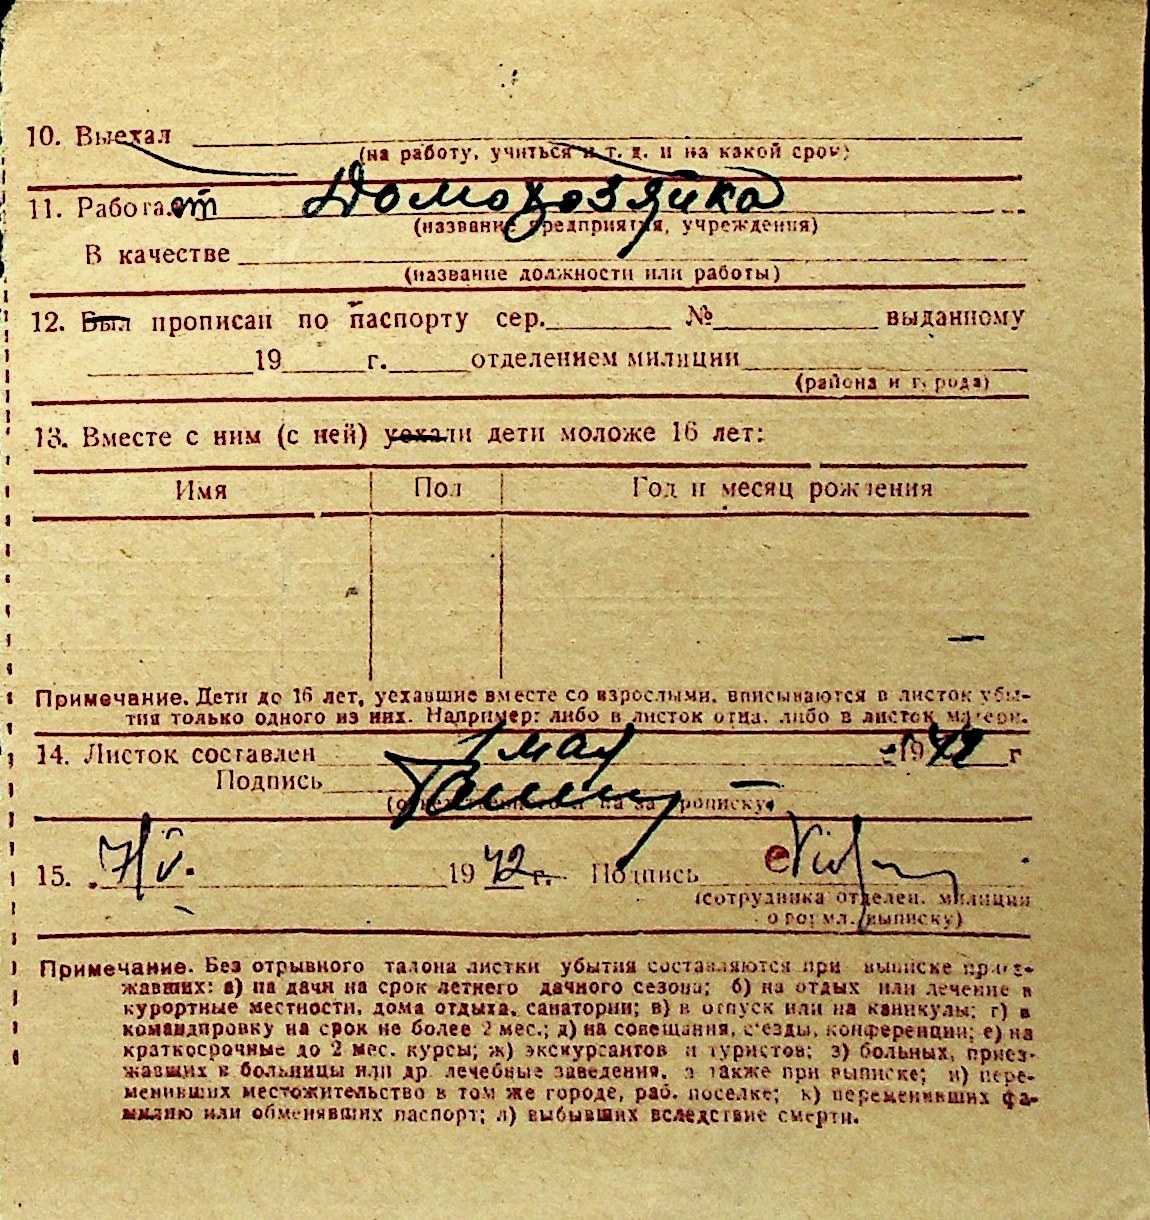 10. Выехал
(на работу, учиться и т. д. и на какой срок)
11. Работает Домохозяйка
(название предприятия, учреждения)
В качестве
(название должности или работы)
12. Был прописан по паспорту сер. № выданному
19 г. отделением милиции
(района и города)
13. Вместе с ним (с ней) уехали дети моложе 16 лет:
Имя Пол Год и месяц рождения
Примечание. Дети до 16 лет, уехавшие вместе со взрослыми, вписываются в листок убы-
тия только одного из них. Например: либо в листок отца, либо в листок матери.
14. Листок составлен 1 мая 1942 г
Подпись
(ответственного за прописку)
15. 7/V. 1942 г. Подпись
(сотрудника отделен. милиции
оформл. выписку)
Примечание. Без отрывного талона листки убытия составляются при выписке приез-
жавших: а) на дачи на срок летнего дачного сезона; б) на отдых или лечение в
курортные местности, дома отдыха, санатории; в) в отпуск или на каникулы; г) в
командировку на срок не более 2 мес.; д) на совещания, съезды, конференции; е) на
краткосрочные до 2 мес. курсы; ж) экскурсантов и туристов; з) больных, приез-
жавших в больницы или др. лечебные заведения, а также при выписке; и) пере-
менивших местожительство в том же городе, раб. поселке; к) переменивших фа-
милию или обменявших паспорт; л) выбывших вследствие смерти.